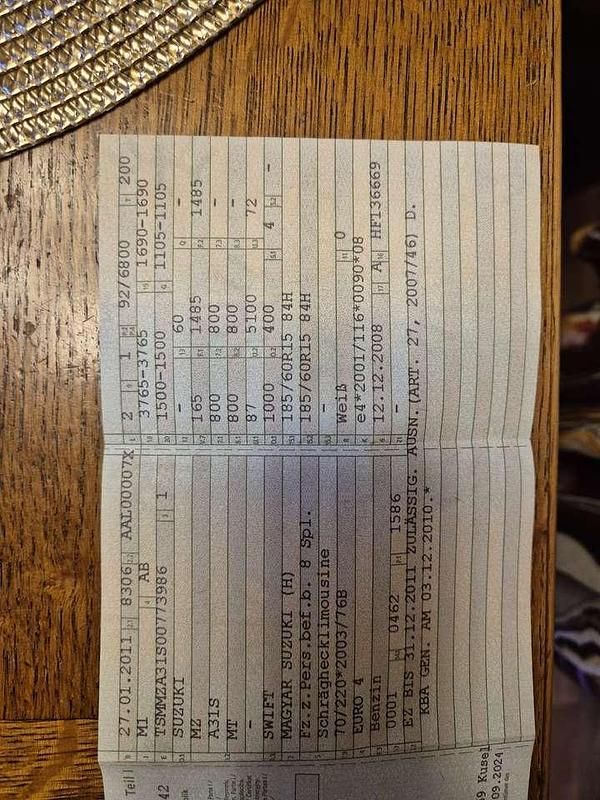 Teil I
42
9 Kusel
09.2024
27.01.2011 8306 AAL00007X
M1 AB
TSMMZA31S00773986 1
SUZUKI
MZ
A31S
MT
-
SWIFT
MAGYAR SUZUKI (H)
Fz.z.Pers.bef.b. 8 Spl.
Schräghecklimousine
70/220*2003/76B
EURO 4
Benzin
0001 0462 1586
EZ BIS 31.12.2011 ZULÄSSIG. AUSN.(ART. 27, 2007/46) D.
KBA GEN. AM 03.12.2010.*
2 1 92/6800 200
3765-3765 1690-1690
1500-1500 1105-1105
- 60 -
165 1485 1485
800 800 -
800 800 -
87 5100 72
1000 400 4 -
185/60R15 84H
185/60R15 84H
-
Weiß 0
e4*2001/116*0090*08
12.12.2008 A HF136669
-